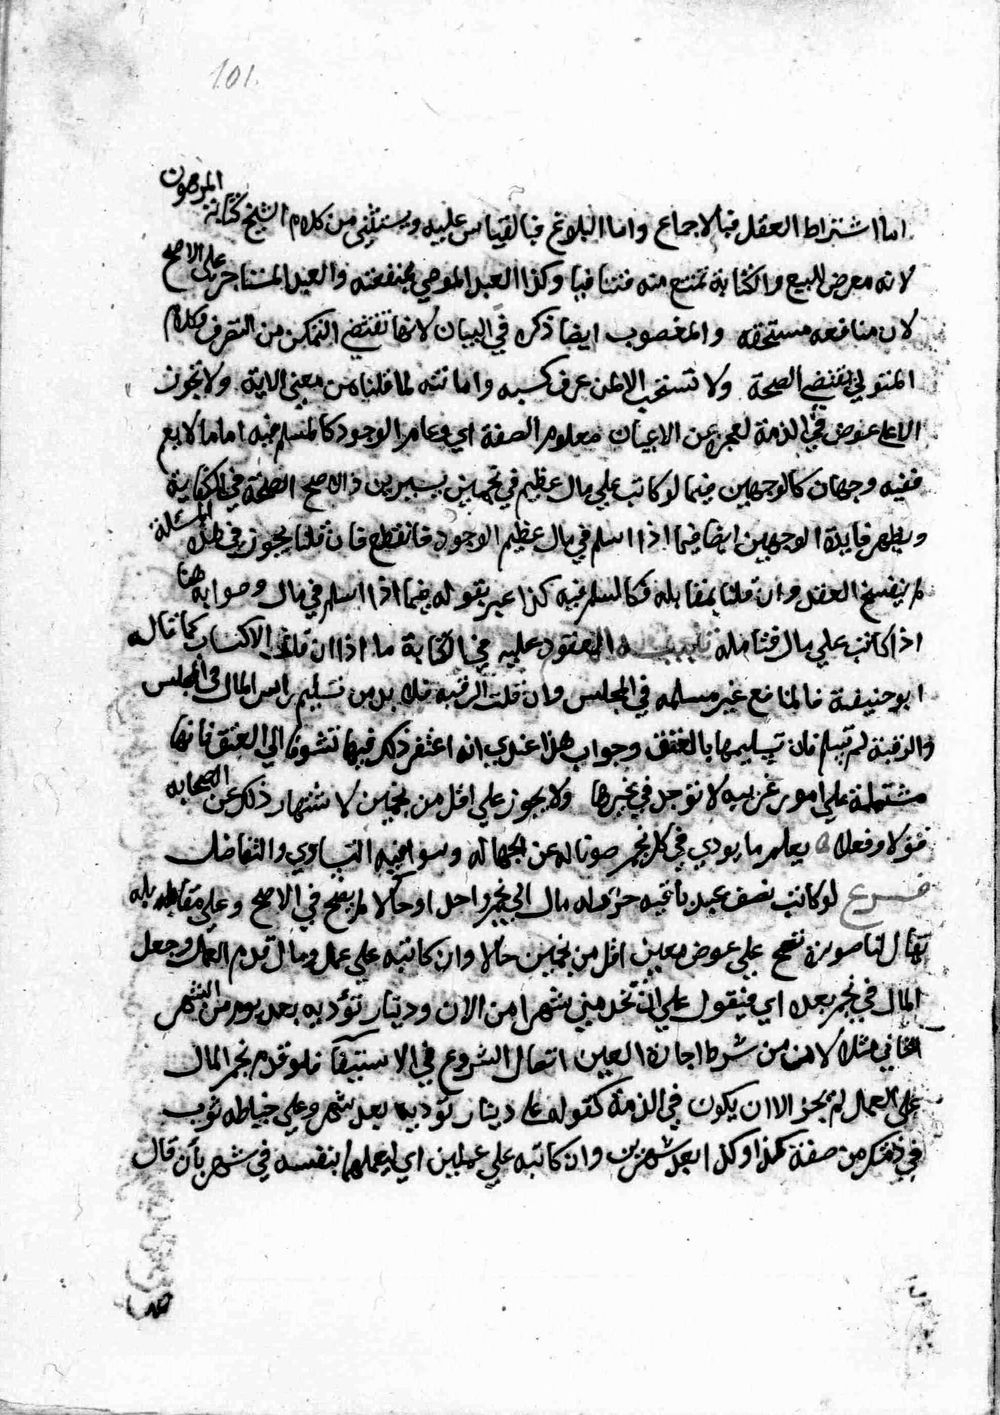 101
اما اشتراط العقل فبالاجماع واما البلوغ فبالقياس عليه ويستثنى من كلام الشيخ كتابة المرهون
لانه معرض للبيع والكتابة تمنع منه فتنافيا وكذا العبد الموصي بمنفعته والعبد المستاجر على الاصح
لان منافعه مستحقه والمغصوب ايضا ذكره في البيان لانها تقتضي التمكن من التصرف وكلام
المتولي يقتضي الصحة ولا تستحب الا لمن عرف كسبه وامانته لما قلنا من معنى الاية ولا تجوز
الا على عوض في الذمة لعجزه عن الاعيان معلوم الصفة اي وعام الوجود كالمسلم فيه اما ما لا يعم
ففيه وجهان كالوجهين فيما لو كاتب علي مال عظيم في نجمين يسيرين والاصح الصحة في الكتابة
ويظهر فايدة الوجهين ايضا فيما اذا اسلم في مال عظيم الوجود فانقطع فان قلنا يجوز في هذه المسئلة
لم ينفسخ العقد وان قلنا بمقابله فكالسلم فيه كذا عبر بقوله فيما اذا اسلم في مال وصوابه هنا
اذا كاتب علي مال فتامله تنبيه المعقود عليه في الكتابة ما اذا ان قلنا الاكساب كما قاله
ابو حنيفة فالمنافع غير مسلمه في المجلس وان قلت الرقبه فلا بد من تسليم راس المال في المجلس
والرقبة لم تسلم فان تسليمها بالعتق وجواب هذا عندي انه اغتفر ذلك فيها تشوفا الي العتق فانها
مشتملة علي امور غريبه لا توجد في غيرها ولا يجوز علي اقل من نجمين لاشتهار ذلك عن الصحابه
قولا وفعلا يعلم ما يودي في كل نجم صونا له عن الجهالة وسوا فيه التساوي والتفاضل
فرع لو كاتب نصف عبد باقيه حر وله مال الي نجم واحد او حالا لم يصح في الاصح وعلى مقابله
يقال لنا صورة تصح علي عوض معين اقل من نجمين حالا وان كاتبه علي عمل ومال قدم العمل وجعل
المال في نجم بعده اي فيقول علي ان تخدمني شهرا من الان ودينار تؤديه بعد يوم من الشهر
الثاني مثلا لان من شرط اجارة العين اتصال الشروع في الاستيفا فلو قدم نجم المال
على العمل لم يجز الا ان يكون في الذمة كقوله على دينار توديه بعد شهر وعلي خياطه ثوب
في ذمتك من صفة كذا وكذا بعد شهرين وان كاتبه علي عملين اي ليعملهما بنفسه في شهر بان قال